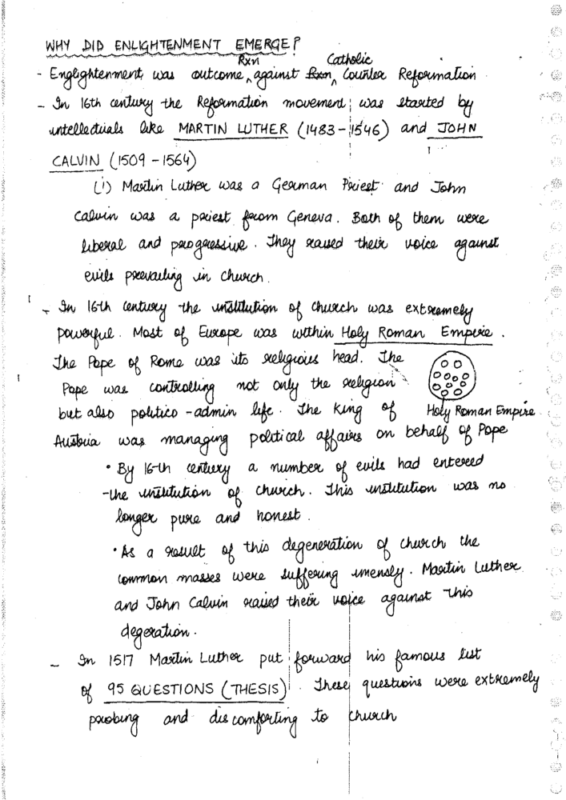 WHY DID ENLIGHTENMENT EMERGE?
Rxn Catholic
- Englightenment was outcome ^ against ^ Counter Reformation
- In 16th century the Reformation movement was started by
intellectuals like MARTIN LUTHER (1483-1546) and JOHN
CALVIN (1509-1564)
(i) Martin Luther was a German Priest and John
Calvin was a priest from Geneva. Both of them were
liberal and progressive. They raised their voice against
evils prevailing in church.
- In 16th century the institution of church was extremely
powerful. Most of Europe was within Holy Roman Empire.
The Pope of Rome was its religious head. The
Pope was controlling not only the religion
but also politico-admin life. The King of
Holy Roman Empire
Austria was managing political affairs on behalf of Pope
• By 16th century a number of evils had entered
the institution of church. This institution was no
longer pure and honest.
• As a result of this degeneration of church the
common masses were suffering imensly. Martin Luther
and John Calvin raised their voice against this
degeration.
- In 1517 Martin Luther put forward his famous list
of 95 QUESTIONS (THESIS). These questions were extremely
probing and discomforting to church